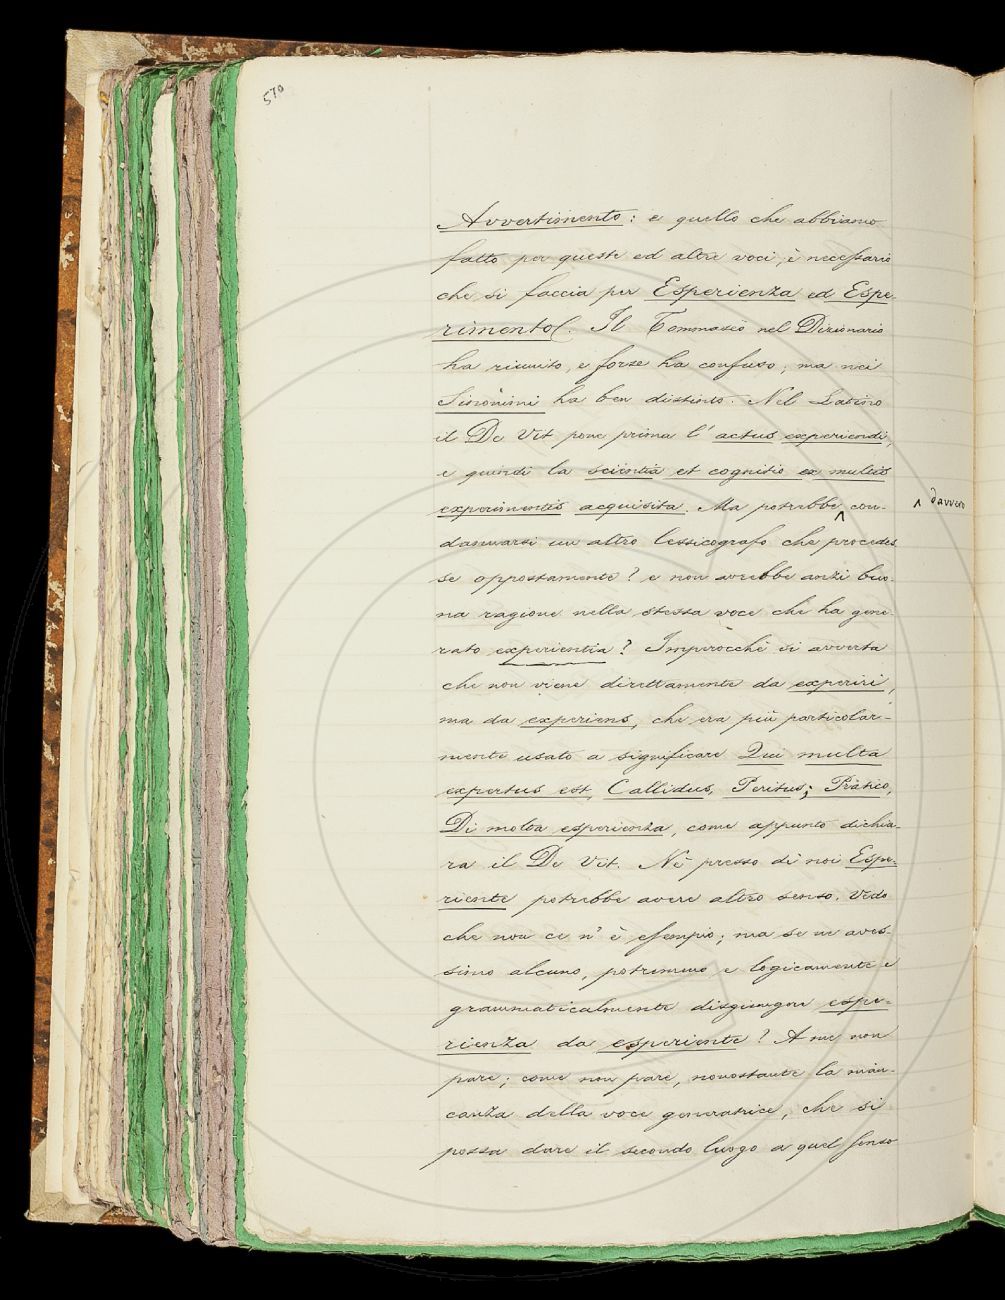 570
Avvertimento: e quello che abbiamo
fatto per queste ed altre voci, è necessario
che si faccia per Esperienza ed Espe-
rimento(. Il Tommaseo nel Dizionario
ha riunito, e forse ha confuso; ma nei
Sinònimi ha ben distinto. Nel Latino
il De Vit pone prima l'actus experiendi,
e quindi la scientia et cognitio ex multis
experimentis acquisita. Ma potrebbe davvero con-
dannarsi un altro lessicografo che procedes-
se oppostamente? e non avrebbe anzi buo-
na ragione nella stessa voce che ha gene-
rato experientia? Imperocchè si avverta
che non viene direttamente da experiri,
ma da experiens, che era più particolar-
mente usato a significare Qui multa
expertus est, Callidus, Peritus; Pràtico,
Di molta esperienza, come appunto dichia-
ra il De Vit. Nè presso di noi Espe-
riente potrebbe avere altro senso. Vedo
che non ce n'è esempio; ma se ne aves-
simo alcuno, potremmo e logicamente e
grammaticalmente disgiungere espe-
rienza da esperiente? A me non
pare; come non pare, nonostante la man-
canza della voce generatrice, che si
possa dare il secondo luogo a quel senso